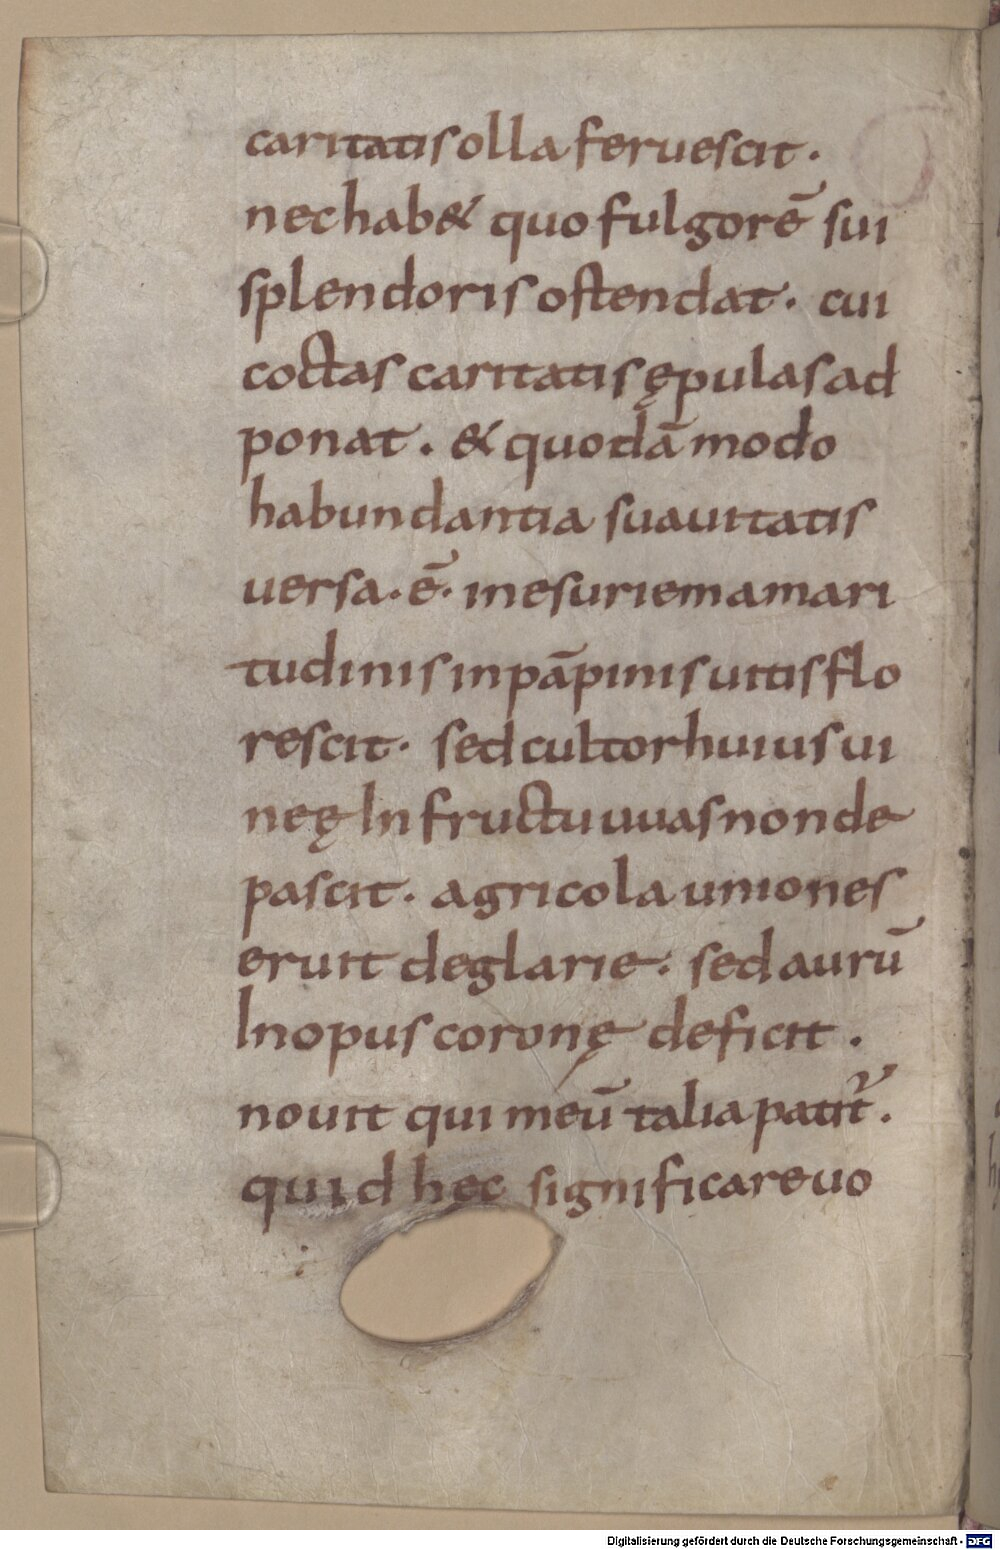 caritatis olla feruescit.
nec hab& quo fulgorē sui
splendoris ostendat. cui
coctas caritatis ępulas ad
ponat. & quodā modo
habundantia suauitatis
uersa. ē. in esuriem amari
tudinis in pāpinis uitis flo
rescit. sed cultor huius ui
neę In fructu uuas non de
pascit. agricola uniones
eruit deglarie. sed aurū
In opus coronę deficit.
nouit qui meū talia patit̄.
quid hec significare uo
Digitalisierung gefördert durch die Deutsche Forschungsgemeinschaft - DFG